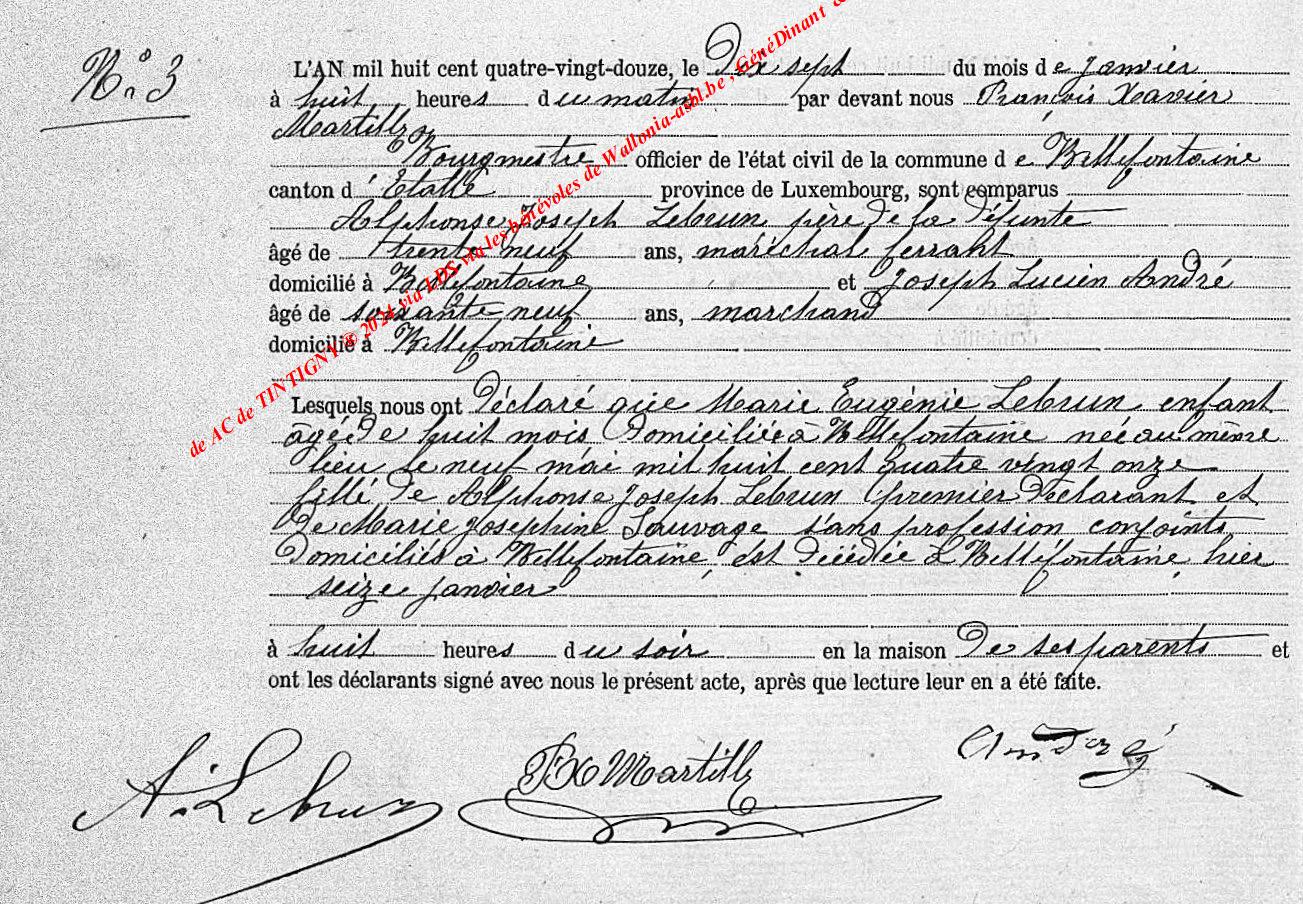 N° 3
L'AN mil huit cent quatre-vingt-douze, le Dix sept du mois de janvier
à huit heures du matin par devant nous François Xavier
Martilly
Bourgmestre officier de l'état civil de la commune de Bellefontaine
canton d'Etalle province de Luxembourg, sont comparus
Alphonse Joseph Lebrun père de la défunte
âgé de trente neuf ans, maréchal ferrant
domicilié à Bellefontaine et Joseph Lucien André
âgé de soixante neuf ans, marchand
domicilié à Bellefontaine
Lesquels nous ont déclaré que Marie Eugénie Lebrun enfant
âgée de huit mois domiciliée à Bellefontaine née au même
lieu le neuf mai mil huit cent quatre vingt onze
fille de Alphonse Joseph Lebrun premier déclarant et
de Marie Josephine Sauvage sans profession conjoints
domiciliés à Bellefontaine, est décédée à Bellefontaine, hier
seize janvier
à huit heures du soir en la maison de ses parents et
ont les déclarants signé avec nous le présent acte, après que lecture leur en a été faite.
A. Lebrun
FX Martilly
André
de AC de TINTIGNY © 2024 via LDS via les bénévoles de Wallonia-asbl.be , GénéDinant &